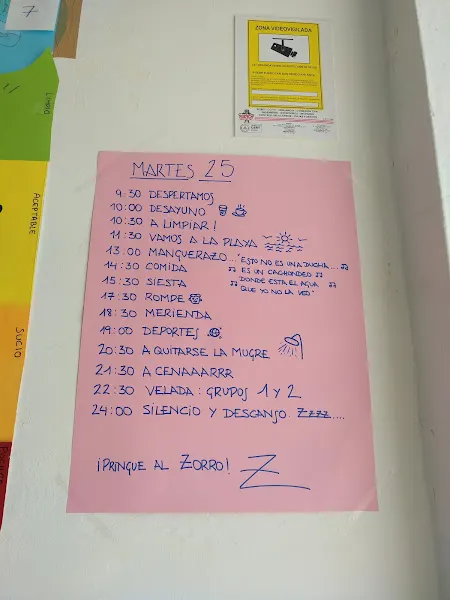 7
LIMPIO
ACEPTABLE
SUCIO
ZONA VIDEOVIGILADA
MARTES 25
9:30 DESPERTAMOS
10:00 DESAYUNO
10:30 A LIMPIAR!
11:30 VAMOS A LA PLAYA
13:00 MANGUERAZO... "ESTO NO ES UNA DUCHA...
ES UN CACHONDEO
DONDE ESTA EL AGUA
QUE YO NO LA VEO"
14:30 COMIDA
15:30 SIESTA
17:30 ROMPE
18:30 MERIENDA
19:00 DEPORTES
20:30 A QUITARSE LA MUGRE
21:30 A CENAAAARRR
22:30 VELADA: GRUPOS 1 Y 2
24:00 SILENCIO Y DESCANSO. Zzzz....
¡PRINGUE AL ZORRO! Z